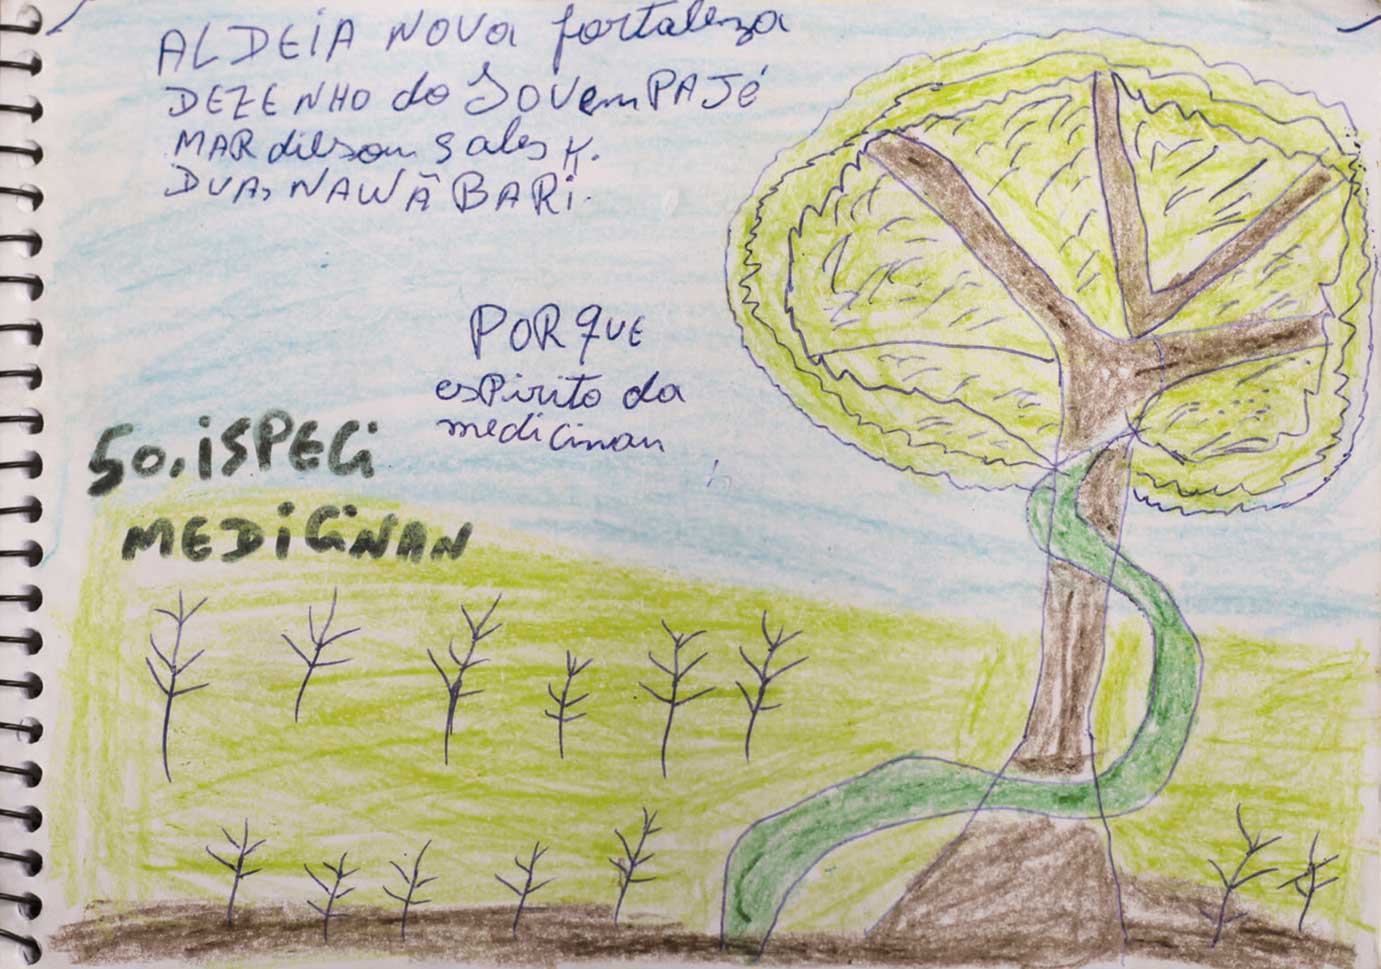 ALDEIA NOVA fortaleza
DEZENHO do JOVem PAJÉ
MARdilson Sales K.
DUA, NAWÃ BARI.
PORQUE
esPirito da
medicinan
50. iSPECi
MEDICINAN